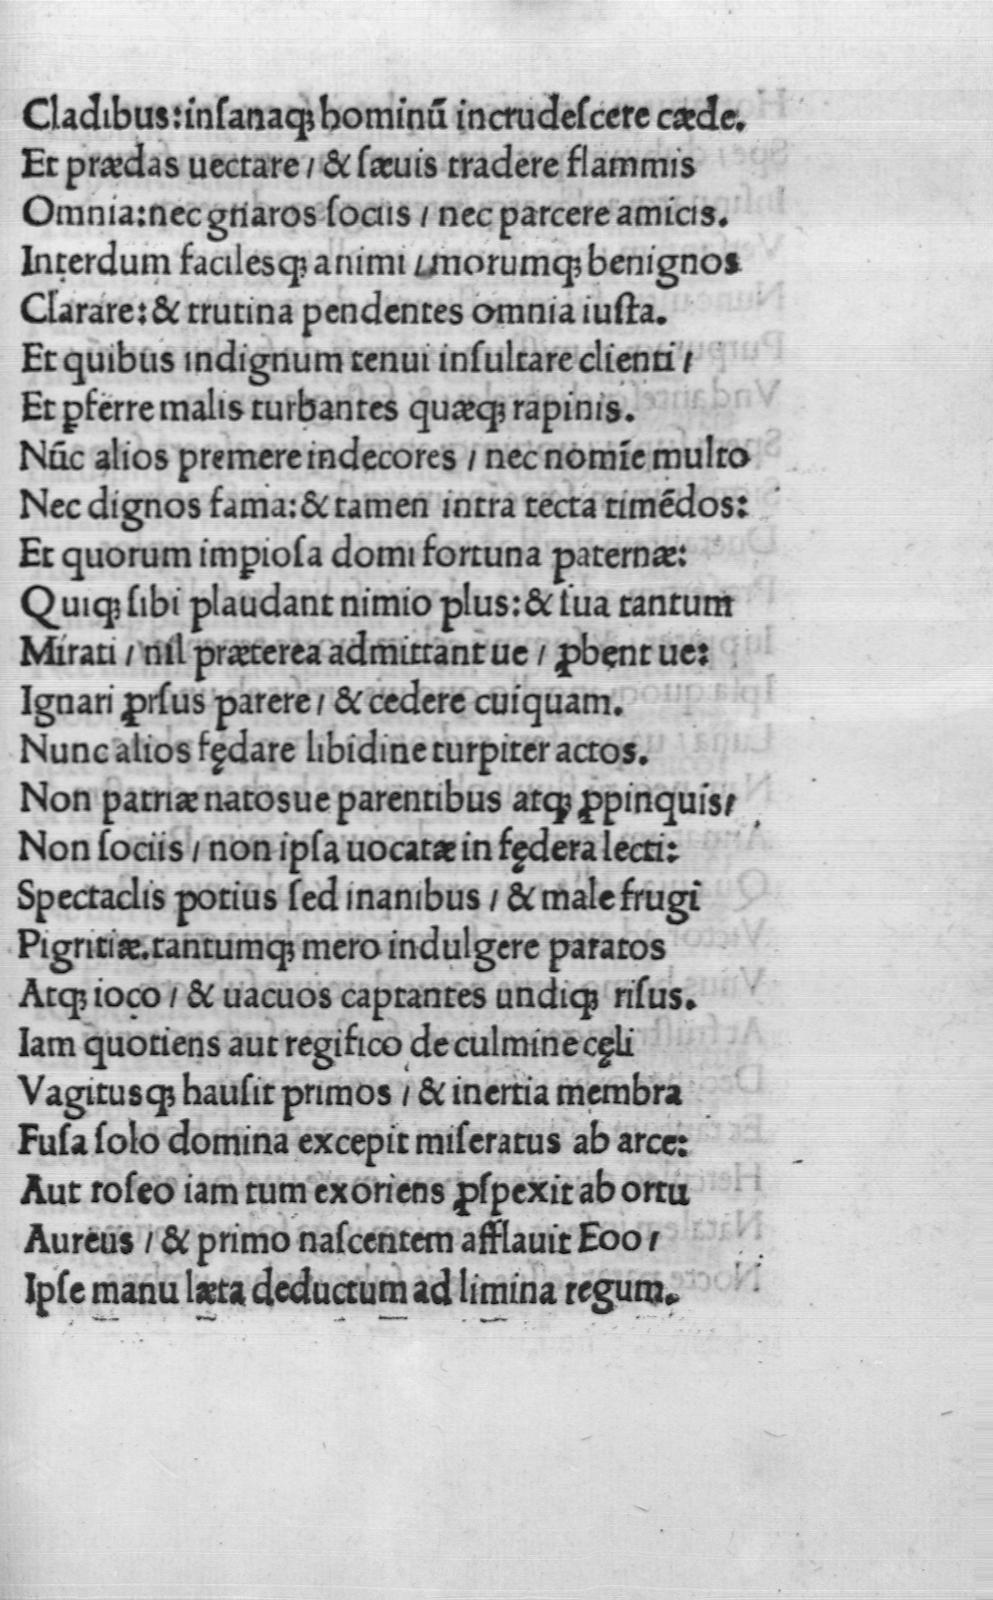 Cladibus:inſanaq; hominũ incrudeſcere cæde.
Et prædas uectare / & ſæuis tradere flammis
Omnia:nec gnaros ſociis / nec parcere amicis.
Interdum facilesq; animi / morumq; benignos
Clarare: & trutina pendentes omnia iuſta.
Et quibus indignum tenui inſultare clienti /
Et ꝑferre malis turbantes quæq; rapinis.
Nũc alios premere indecores / nec nomĩe multo
Nec dignos fama: & tamen intra tecta timẽdos:
Et quorum impioſa domi fortuna paternæ:
Quiq; ſibi plaudant nimio plus: & ſua tantum
Mirati / nil præterea admittant ue / ꝓbent ue:
Ignari ꝓrſus parere / & cedere cuiquam.
Nunc alios fędare libidine turpiter actos.
Non patriæ natosue parentibus atq; ꝓpinquis /
Non ſociis / non ipſa uocatæ in fędera lecti:
Spectaclis potius ſed inanibus / & male frugi
Pigritiæ.tantumq; mero indulgere paratos
Atq; ioco / & uacuos captantes undiq; riſus.
Iam quotiens aut regifico de culmine cęli
Vagitusq; hauſit primos / & inertia membra
Fuſa ſolo domina excepit miſeratus ab arce:
Aut roſeo iam tum exoriens ꝓſpexit ab ortu
Aureus / & primo naſcentem afflauit Eoo /
Ipſe manu læta deductum ad limina regum.